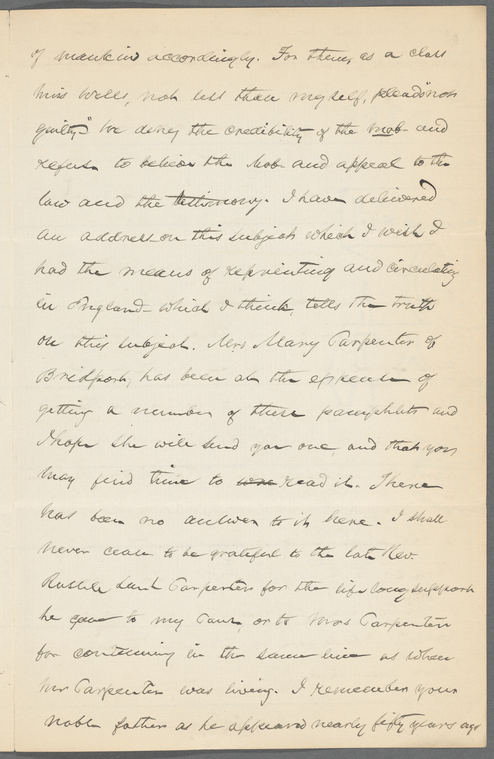 of mankind accordingly. For them, as a class
Miss Wells, not less than myself, pleads "not
guilty." We deny the credibility of the mob and
refuse to believe the Mob and appeal to the
law and the testimony. I have delivered
an address on this subject which I wish I
had the means of reprinting and circulating
in England – which I think, tells the truth
on this subject. Mrs Mary Carpenter of
Bridport, has been at the expense of
getting a number of these pamphlets and
I hope she will send you one and that you
may find time to read it. There
has been no answer to it here. I shall
never cease to be grateful to the late Rev.
Russell Lant Carpenter for the life long support
he gave to my cause, or to Mrs Carpenter
for continuing in the same line as when
Mr Carpenter was living. I remember your
noble father as he appeared nearly fifty years ago